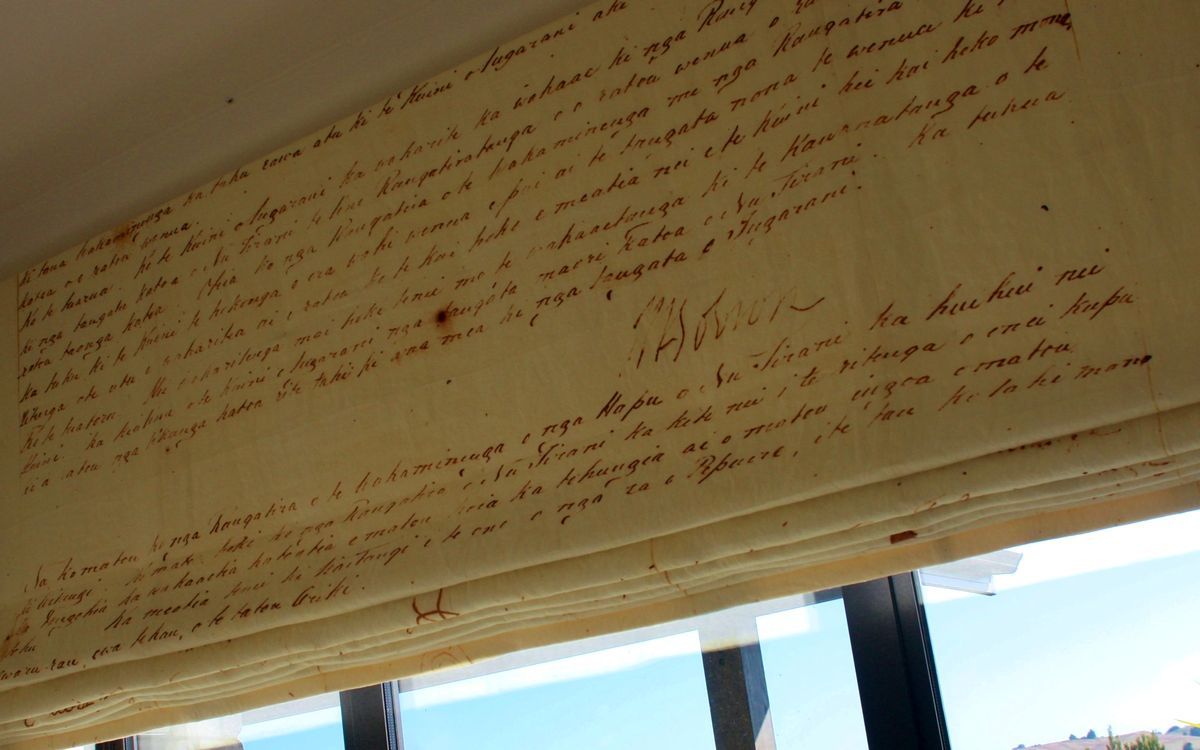 ki taua wakaminenga ka tuku rawa atu ki te Kuini o Ingarani ake
katoa o o ratou wenua.
Ko te tuarua. Ko te Kuini o Ingarani ka wakarite ka wakaae ki nga Rang
ki nga tangata katoa o Nu Tirani te tino Rangatiratanga o o ratou wenua o
ratou taonga katoa. Otiia ko nga Rangatira o te wakaminenga me nga Rangatira
ka tuku ki te Kuini te hokonga o era wahi wenua e pai ai te tangata nona te wenua ki
ritenga o te utu e wakaritea ai e ratou ko te kai hoko e meatia nei e te Kuini hei kai hoko mona,
Ko te tuatoru. Hei wakaritenga mai hoki tenei mo te wakaaetanga ki te Kawanatanga o te
Kuini. Ka tiakina e te Kuini o Ingarani nga tangata maori katoa o Nu Tirani. Ka tukua
ki a ratou nga tikanga katoa rite tahi ki ana mea ki nga tangata o Ingarani.
W Hobson
Na ko matou ko nga Rangatira o te wakaminenga o nga Hapu o Nu Tirani ka huihui nei
ki Waitangi. Ko matou hoki ko nga Rangatira o Nu Tirani ka kite nei i te ritenga o enei kupu
Ka tangohia ka wakaaetia katoatia e matou koia ka tohungia ai o matou ingoa o matou
tohu. Ka meatia tenei ki Waitangi i te ono o nga ra o Pepueri, i te tau kotahi mano
waru rau, ewa tekau, o to tatou Ariki.